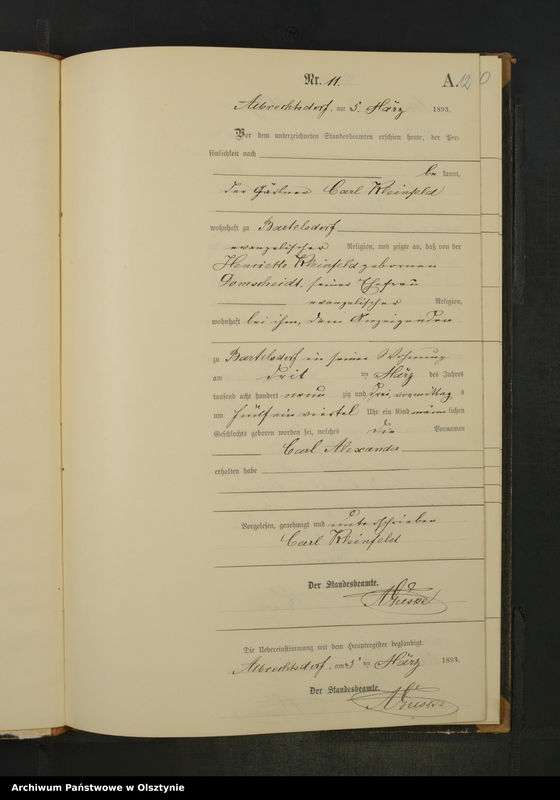 Nr. 11. A. 12
Albrechtsdorf, am 5. März 1893.
Vor dem unterzeichneten Standesbeamten erschien heute, der Per-
sönlichkeit nach
be kannt,
der Gärtner Carl Kleinfeld
wohnhaft zu Bartelsdorf
evangelischer Religion, und zeigte an, daß von der
Henriette Kleinfeld geborenen
Domscheidt, seiner Ehefrau
evangelischer Religion,
wohnhaft bei ihm, dem Anzeigenden
zu Bartelsdorf in seiner Wohnung
am März des Jahres
tausend acht hundert neun zig und drei, vormittag s
um fünf ein viertel Uhr ein Kind männ lichen
Geschlechts geboren worden sei, welches die Vornamen
Carl Alexander
erhalten habe
Vorgelesen, genehmigt und unterschrieben
Carl Kleinfeld
Der Standesbeamte.
Die Uebereinstimmung mit dem Hauptregister beglaubigt.
Albrechtsdorf, am 5 ten März 1893.
Der Standesbeamte.
Archiwum Państwowe w Olsztynie